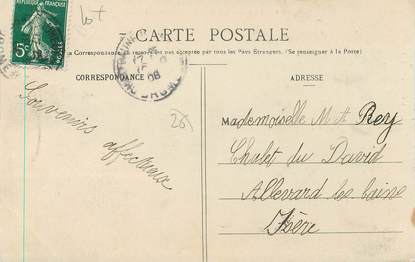 RÉPUBLIQUE FRANÇAISE
5c
POSTES
lot
CARTE POSTALE
La Correspondance au recto n'est pas acceptée par tous les Pays Étrangers. (Se renseigner à la Poste)
CORRESPONDANCE
ADRESSE
08
DROME
Souvenirs
affectueux
Mademoiselle M Rey
Chalet du David
Allevard les bains
Isère